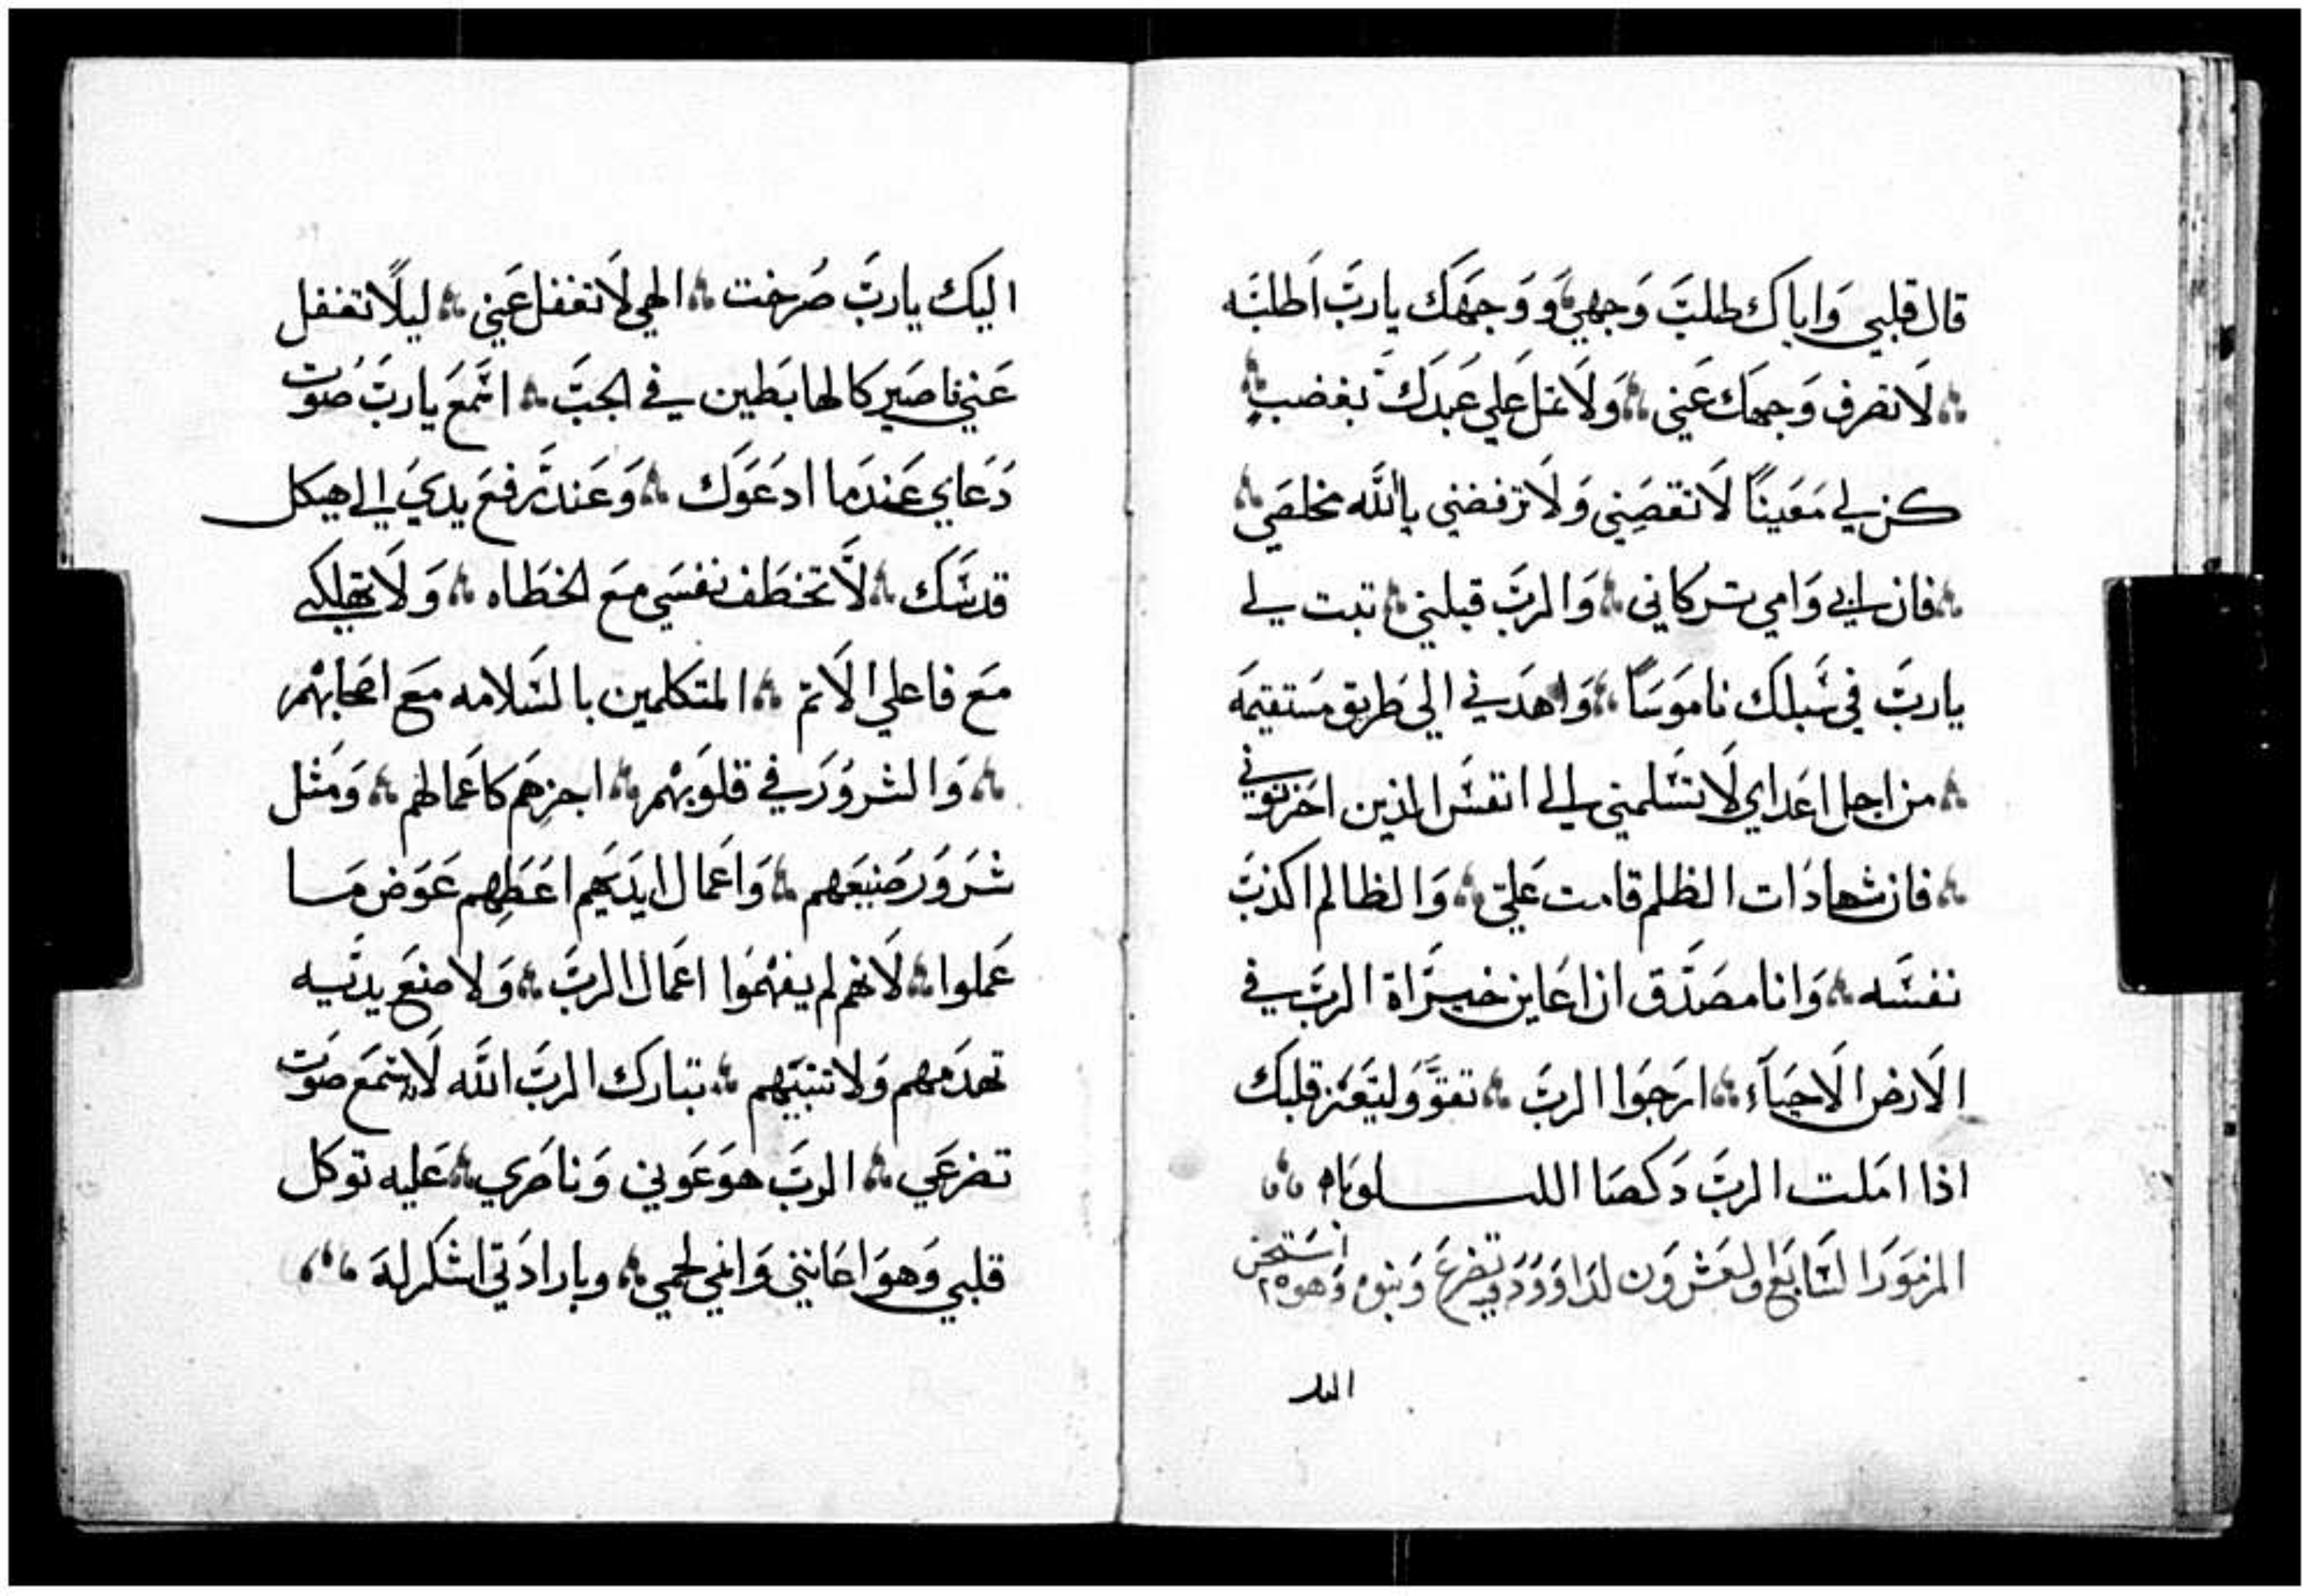 قال قلبي وَاياكَ طلبَت وَجهي وَوَجهَكَ يارَبّ اَطلبَه
لَا تصرف وَجهكَ عَني وَلَا تمل عَلي عَبدَكَ بغضبٍ
كن لي مَعَينًا لَا تقصَيني وَلَا ترفضني يا اللّه مخلصَي
فان ابي وَامي تركاني وَالربَّ قبلني تبت لي
يارَبّ في سَبلكَ نامَوَسَاً وَاهدَني الي طَريق مَستقيمَه
من اجل اعَداي لَا تسَلمني الي انفسَ الذين احَزنوَني
فان شهادَات الظلم قامت عَليّ وَالظالم اكذبَ
نفسَه وَانا مصَدّق ان اعَاين خيرَاة الربَّ في
الَارض الَاحيَآء ارَجَوا الربَّ تقوَّ وَليَتعَزز قلبَك
اذا امَلت الربَّ دَكصَا اللـــلويَا
المزمَوَر السَابَع والعَشرَوَن لدَاوَوَدَ تضرعَ وَهو ٢٥
اليك
اليَك يارَبّ صَرَخت الهي لَا تغفل عَني ليلًا تغفل
عَني فاصَير كالهابَطين في الجبَّ اسَمَعَ يارَبَّ صَوَت
دَعَاي عَندَما ادعَوَك وَعَند رَفعَ يديَ الي هيكل
قدسَكَ لَا تخطَف نفسَي مَع الخطَاه وَلَا تهلكني
مَع فاعلي الَاثم المتكَلمين بالسَلامه مَع اصَحَابهْم
وَالشروَرَ في قلوَبهْم اجزهَم كاعَمالهَم وَمَثل
شرَوَرَ صَنيعَهم وَاعَمال ايدَيَهم اعَطِهم عَوَض مَا
عَملوا لَانهم لم يفهمَوا اعَمال الربَّ وَلَا صنعَ يدَيه
تهدَمهم وَلَا تبنيَهم تبارَك الربَّ اللّه لَانه سَمَع صَوَت
تضرعَي الربَّ هوَ عَوَني وَناصَري عَليه توكَل
قلبي وَهوَ اعَانني وَانمي لحمي وبارادَتي اشكرله